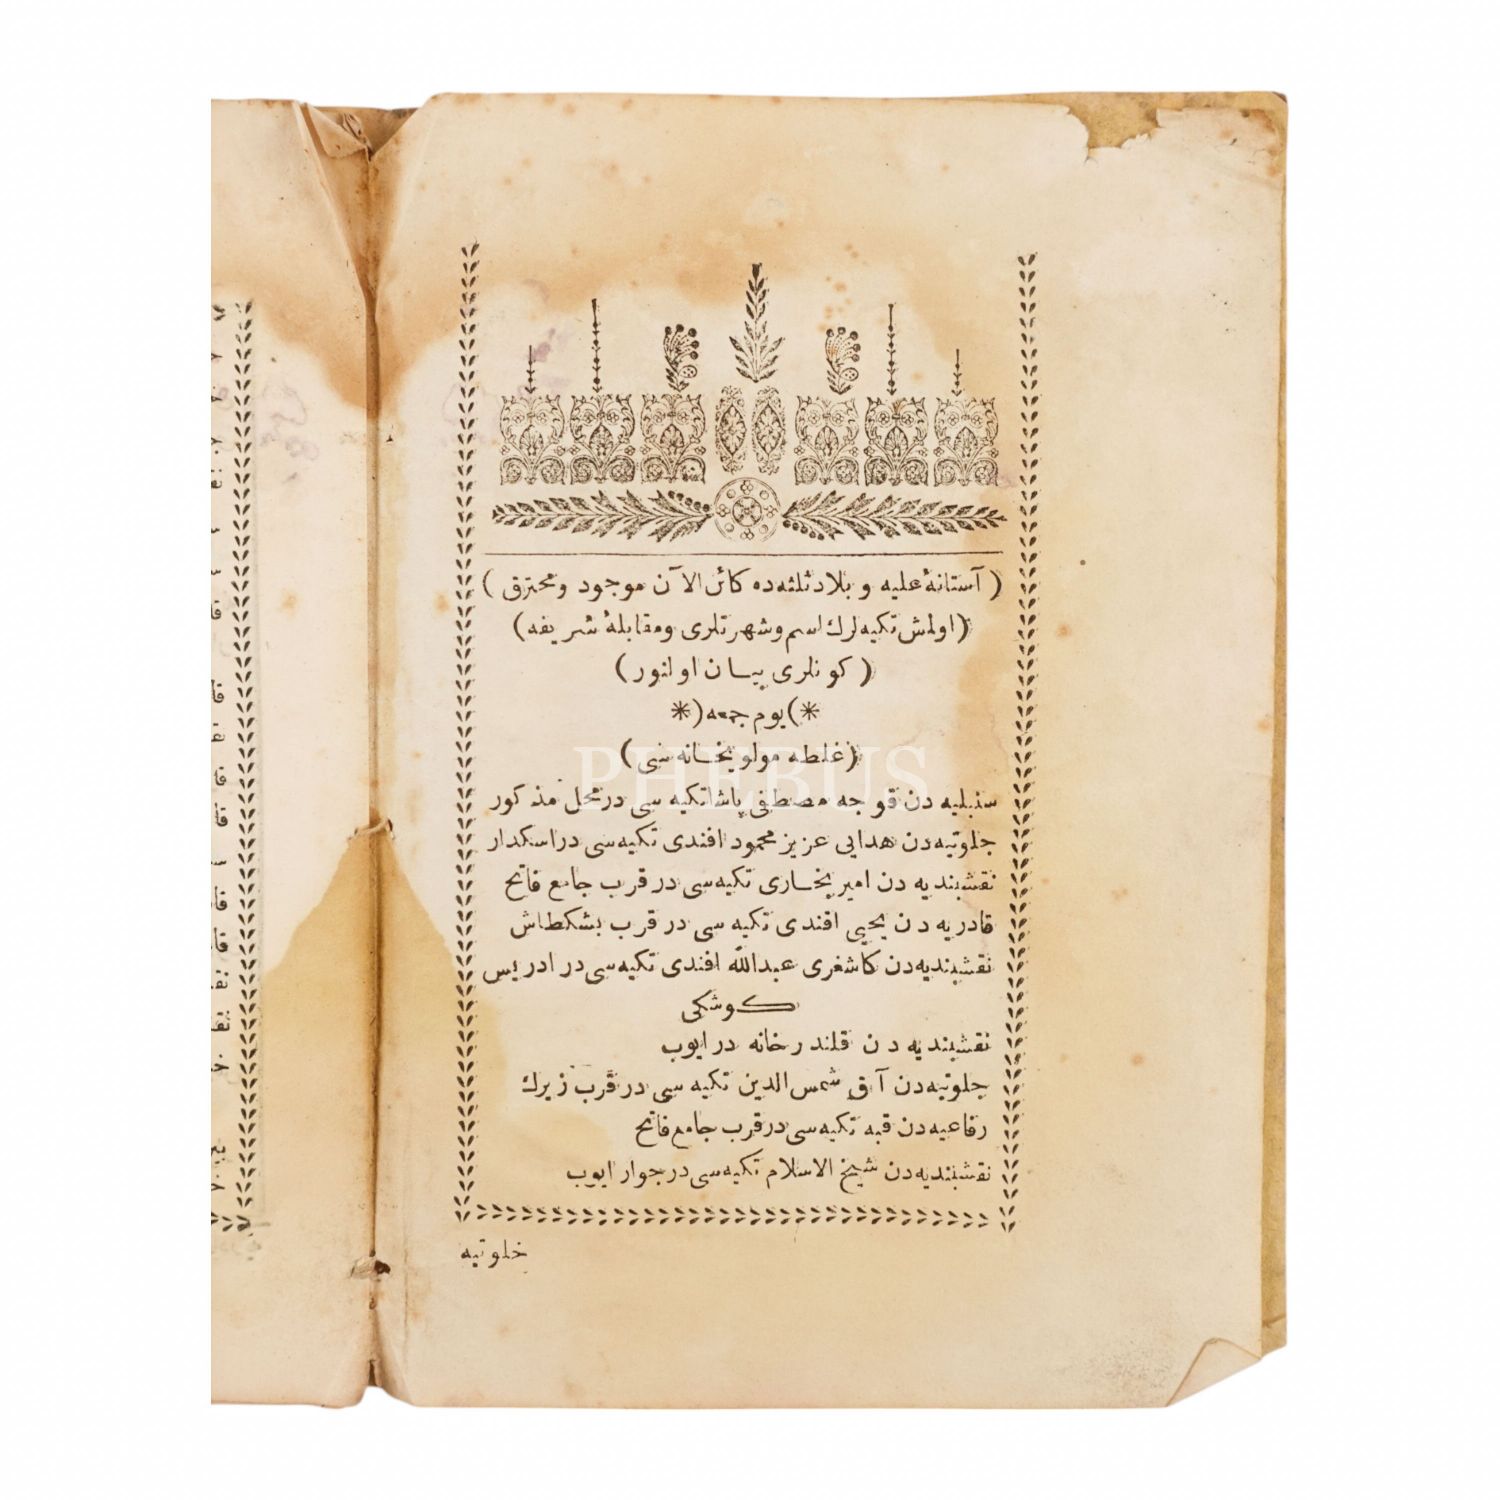 ( آستانۀ علیه و بلاد ثلثه‌ده کائن الآن موجود و محترق )
( اولمش تکیه‌لرك اسم و شهرتلری و مقابلۀ شریفه )
( کونلری بیان اولنور )
*) یوم جمعه (*
( غلطه مولویخانه سی )
PHEBUS
سنبلیه دن قوجه مصطفی پاشا تکیه سی در محل مذکور
جلوتیه دن هدایی عزیز محمود افندی تکیه سی در اسکدار
نقشبندیه دن امیر بخاری تکیه سی در قرب جامع فاتح
قادریه دن یحیی افندی تکیه سی در قرب بشکطاش
نقشبندیه دن کاشغری عبدالله افندی تکیه سی در ادریس
کوشکی
نقشبندیه دن قلندرخانه در ایوب
جلوتیه دن آق شمس الدین تکیه سی در قرب زیرك
رفاعیه دن قبه تکیه سی در قرب جامع فاتح
نقشبندیه دن شیخ الاسلام تکیه سی در جوار ایوب
خلوتیه